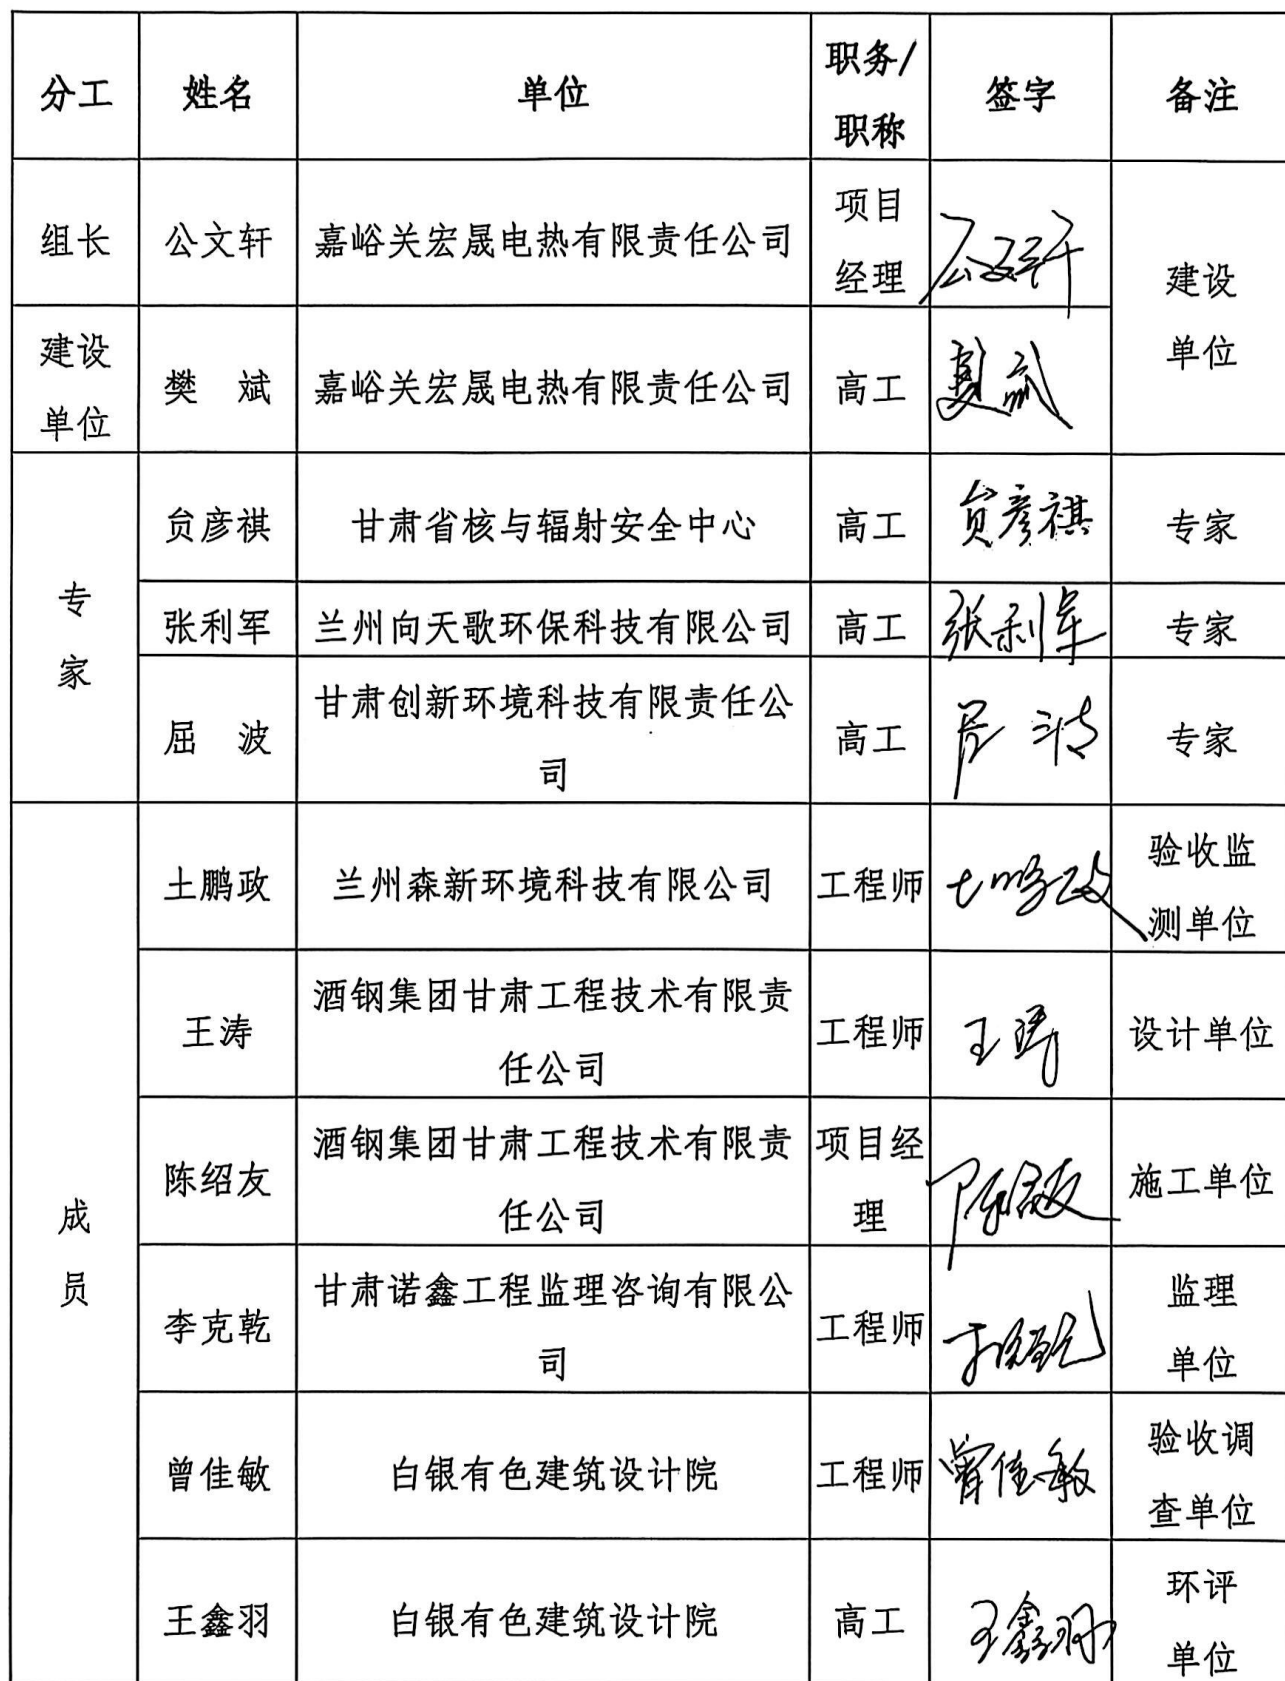 分工 姓名 单位 职务/职称 签字 备注
组长 公文轩 嘉峪关宏晟电热有限责任公司 项目经理 公文轩 建设单位
建设单位 樊 斌 嘉峪关宏晟电热有限责任公司 高工 樊斌
专家 贠彦祺 甘肃省核与辐射安全中心 高工 贠彦祺 专家
张利军 兰州向天歌环保科技有限公司 高工 张利军 专家
屈 波 甘肃创新环境科技有限责任公司 高工 屈波 专家
成员 土鹏政 兰州森新环境科技有限公司 工程师 土鹏政 验收监测单位
王涛 酒钢集团甘肃工程技术有限责任公司 工程师 王涛 设计单位
陈绍友 酒钢集团甘肃工程技术有限责任公司 项目经理 陈绍友 施工单位
李克乾 甘肃诺鑫工程监理咨询有限公司 工程师 李克乾 监理单位
曾佳敏 白银有色建筑设计院 工程师 曾佳敏 验收调查单位
王鑫羽 白银有色建筑设计院 高工 王鑫羽 环评单位